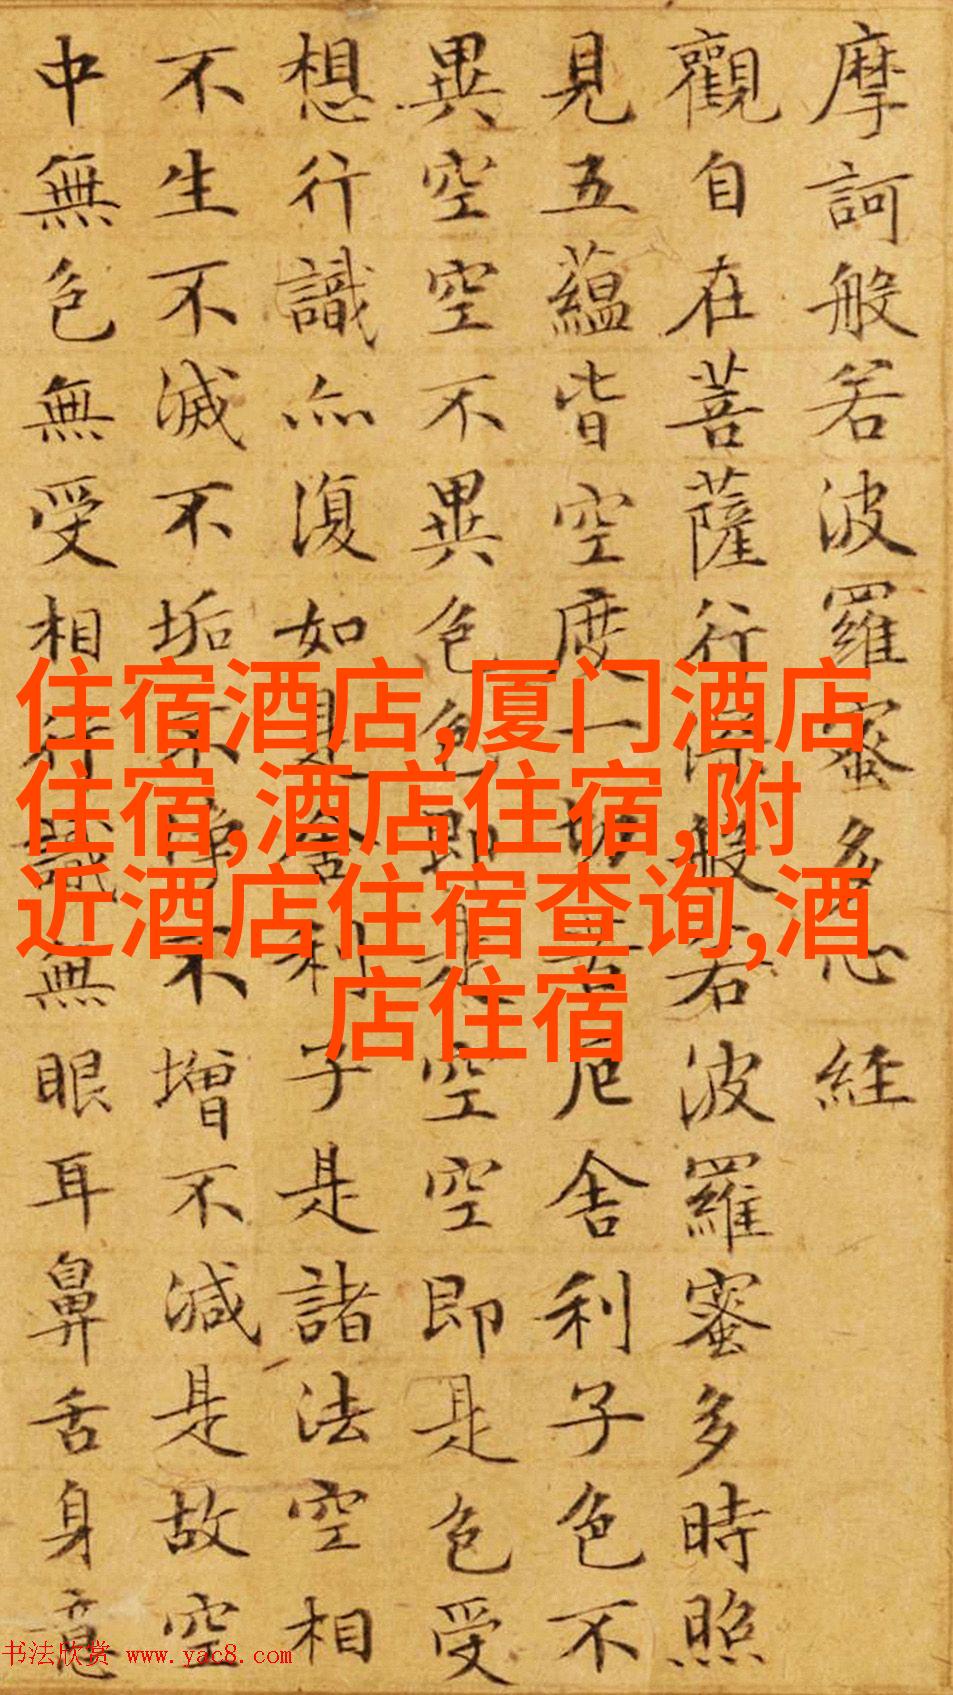 摩訶般若波羅蜜多心経
觀自在菩薩行深般若波羅蜜多時照
見五蘊皆空度一切苦厄舍利子色不
異空空不異色色即是空空即是色受
想行識亦復如是舍利子是諸法空相
不生不滅不垢不淨不增不減是故空
中無色無受相行識無眼耳鼻舌身意
住宿酒店,厦门酒店
住宿,酒店住宿,附
近酒店住宿查询,酒
店住宿
书法欣赏 www.yac8.com